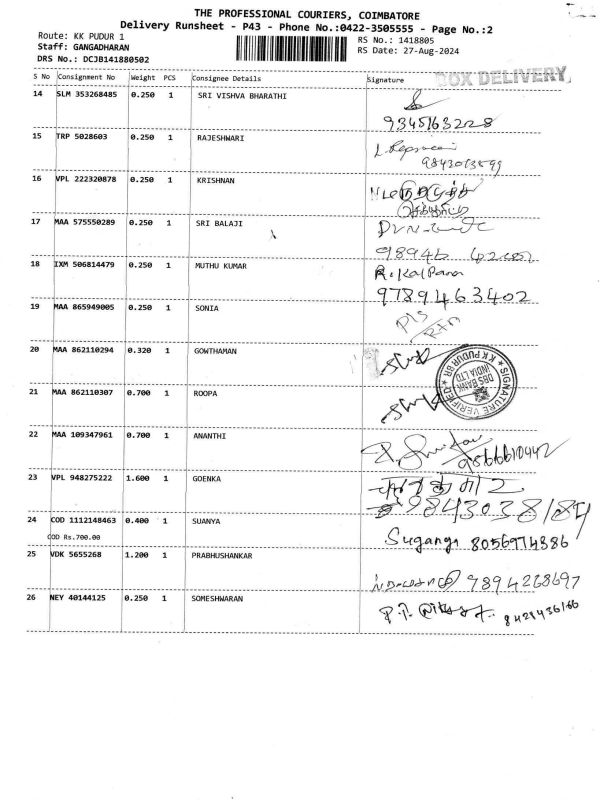 THE PROFESSIONAL COURIERS, COIMBATORE
Delivery Runsheet - P43 - Phone No.:0422-3505555 - Page No.:2
Route: KK PUDUR 1
Staff: GANGADHARAN
DRS No.: DCJB141880502
RS No.: 1418805
RS Date: 27-Aug-2024
S No Consignment No Weight PCS Consignee Details Signature
BOX DELIVERY
14 SLM 353268485 0.250 1 SRI VISHVA BHARATHI
9345163228
15 TRP 5028603 0.250 1 RAJESHWARI
9843013599
16 VPL 222320878 0.250 1 KRISHNAN
17 MAA 575550289 0.250 1 SRI BALAJI
98946
18 IXM 506814479 0.250 1 MUTHU KUMAR R. Kalpana
9789463402
19 MAA 865949005 0.250 1 SONIA
20 MAA 862110294 0.320 1 GOWTHAMAN
SIGNATURE VERIFIED
KK PUDUR BR
DBS BANK INDIA LTD
21 MAA 862110307 0.700 1 ROOPA
22 MAA 109347961 0.700 1 ANANTHI
9566610442
23 VPL 948275222 1.600 1 GOENKA
24 COD 1112148463 0.400 1 SUANYA
COD Rs.700.00
Suganga 8056974386
25 VDK 5655268 1.200 1 PRABHUSHANKAR
9894268697
26 NEY 40144125 0.250 1 SOMESHWARAN
8428436166